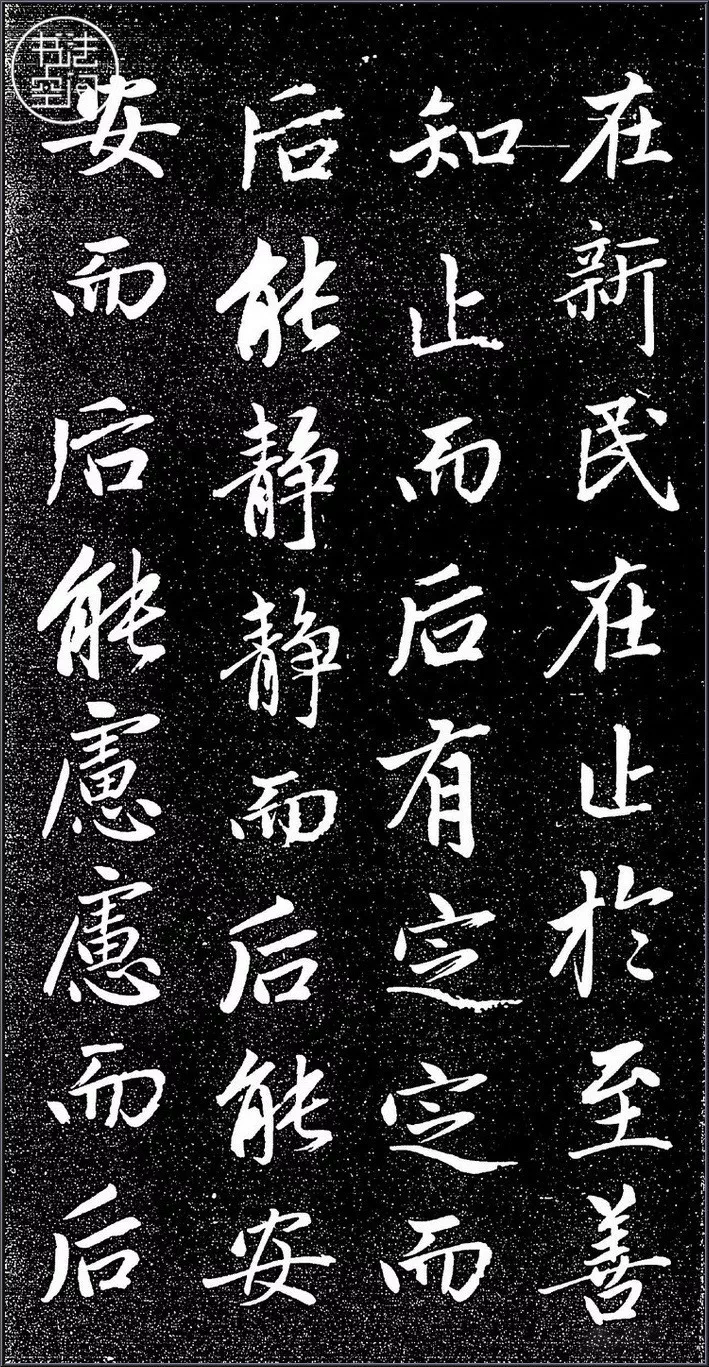 在新民在止於至善
知止而后有定定而
后能静静而后能安
安而后能慮慮而后
书法空间